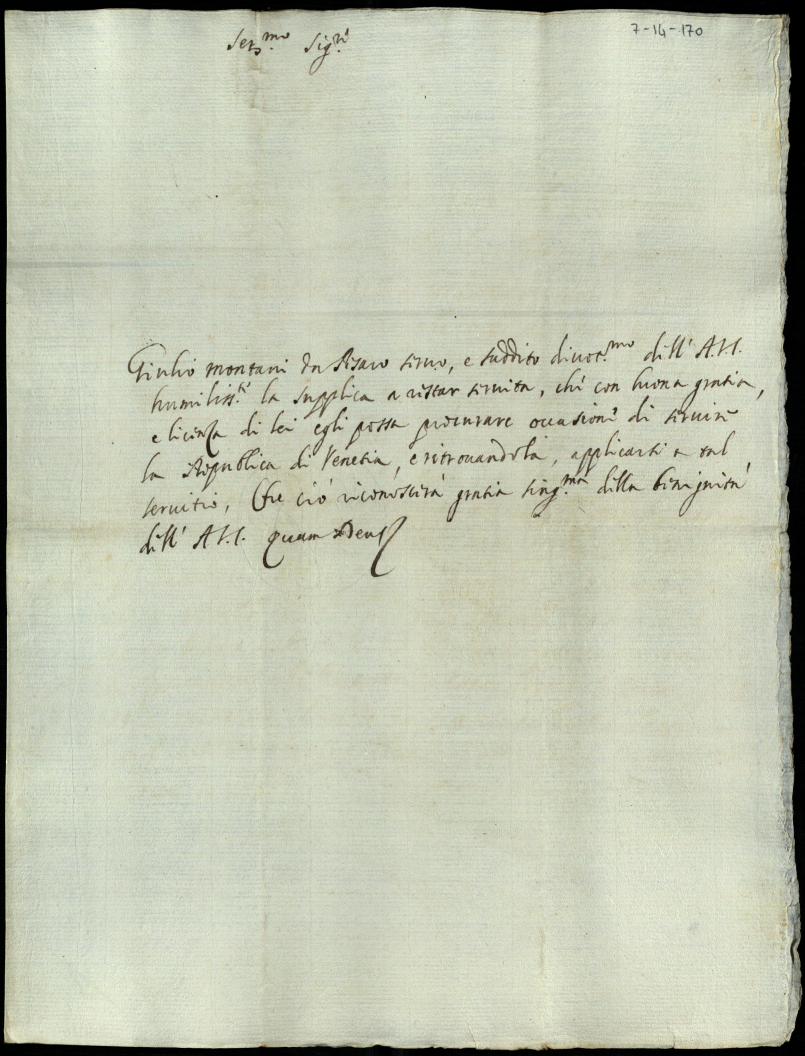 7-14-170
Ser.mo Sig.re
Giulio Montani da Pesaro seruo, e suddito diuot.mo dell' A.V.S.
humiliss.te la supplica a restar seruita, che con buona gratia,
e licenza di lei egli possa procurare occasione di seruire
la Republica di Venetia, e ritrouandola, applicarsi a tal
seruitio, Che ciò riconoscerà gratia sing.ma della benignità
dell' A.V.S. quam Deus